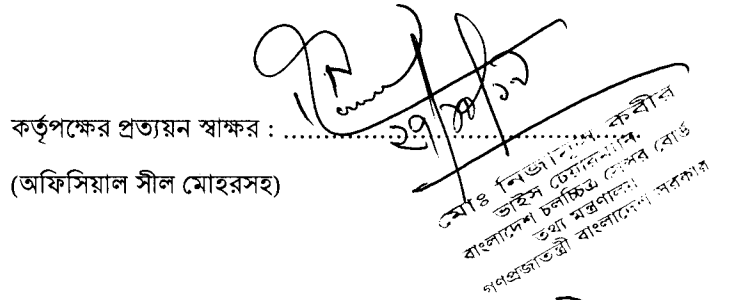 কর্তৃপক্ষের প্রত্যয়ন স্বাক্ষর : ........................................
(অফিসিয়াল সীল মোহরসহ)
মোঃ নিজামুল কবীর
ভাইস চেয়ারম্যান
বাংলাদেশ চলচ্চিত্র সেন্সর বোর্ড
তথ্য মন্ত্রণালয়
গণপ্রজাতন্ত্রী বাংলাদেশ সরকার